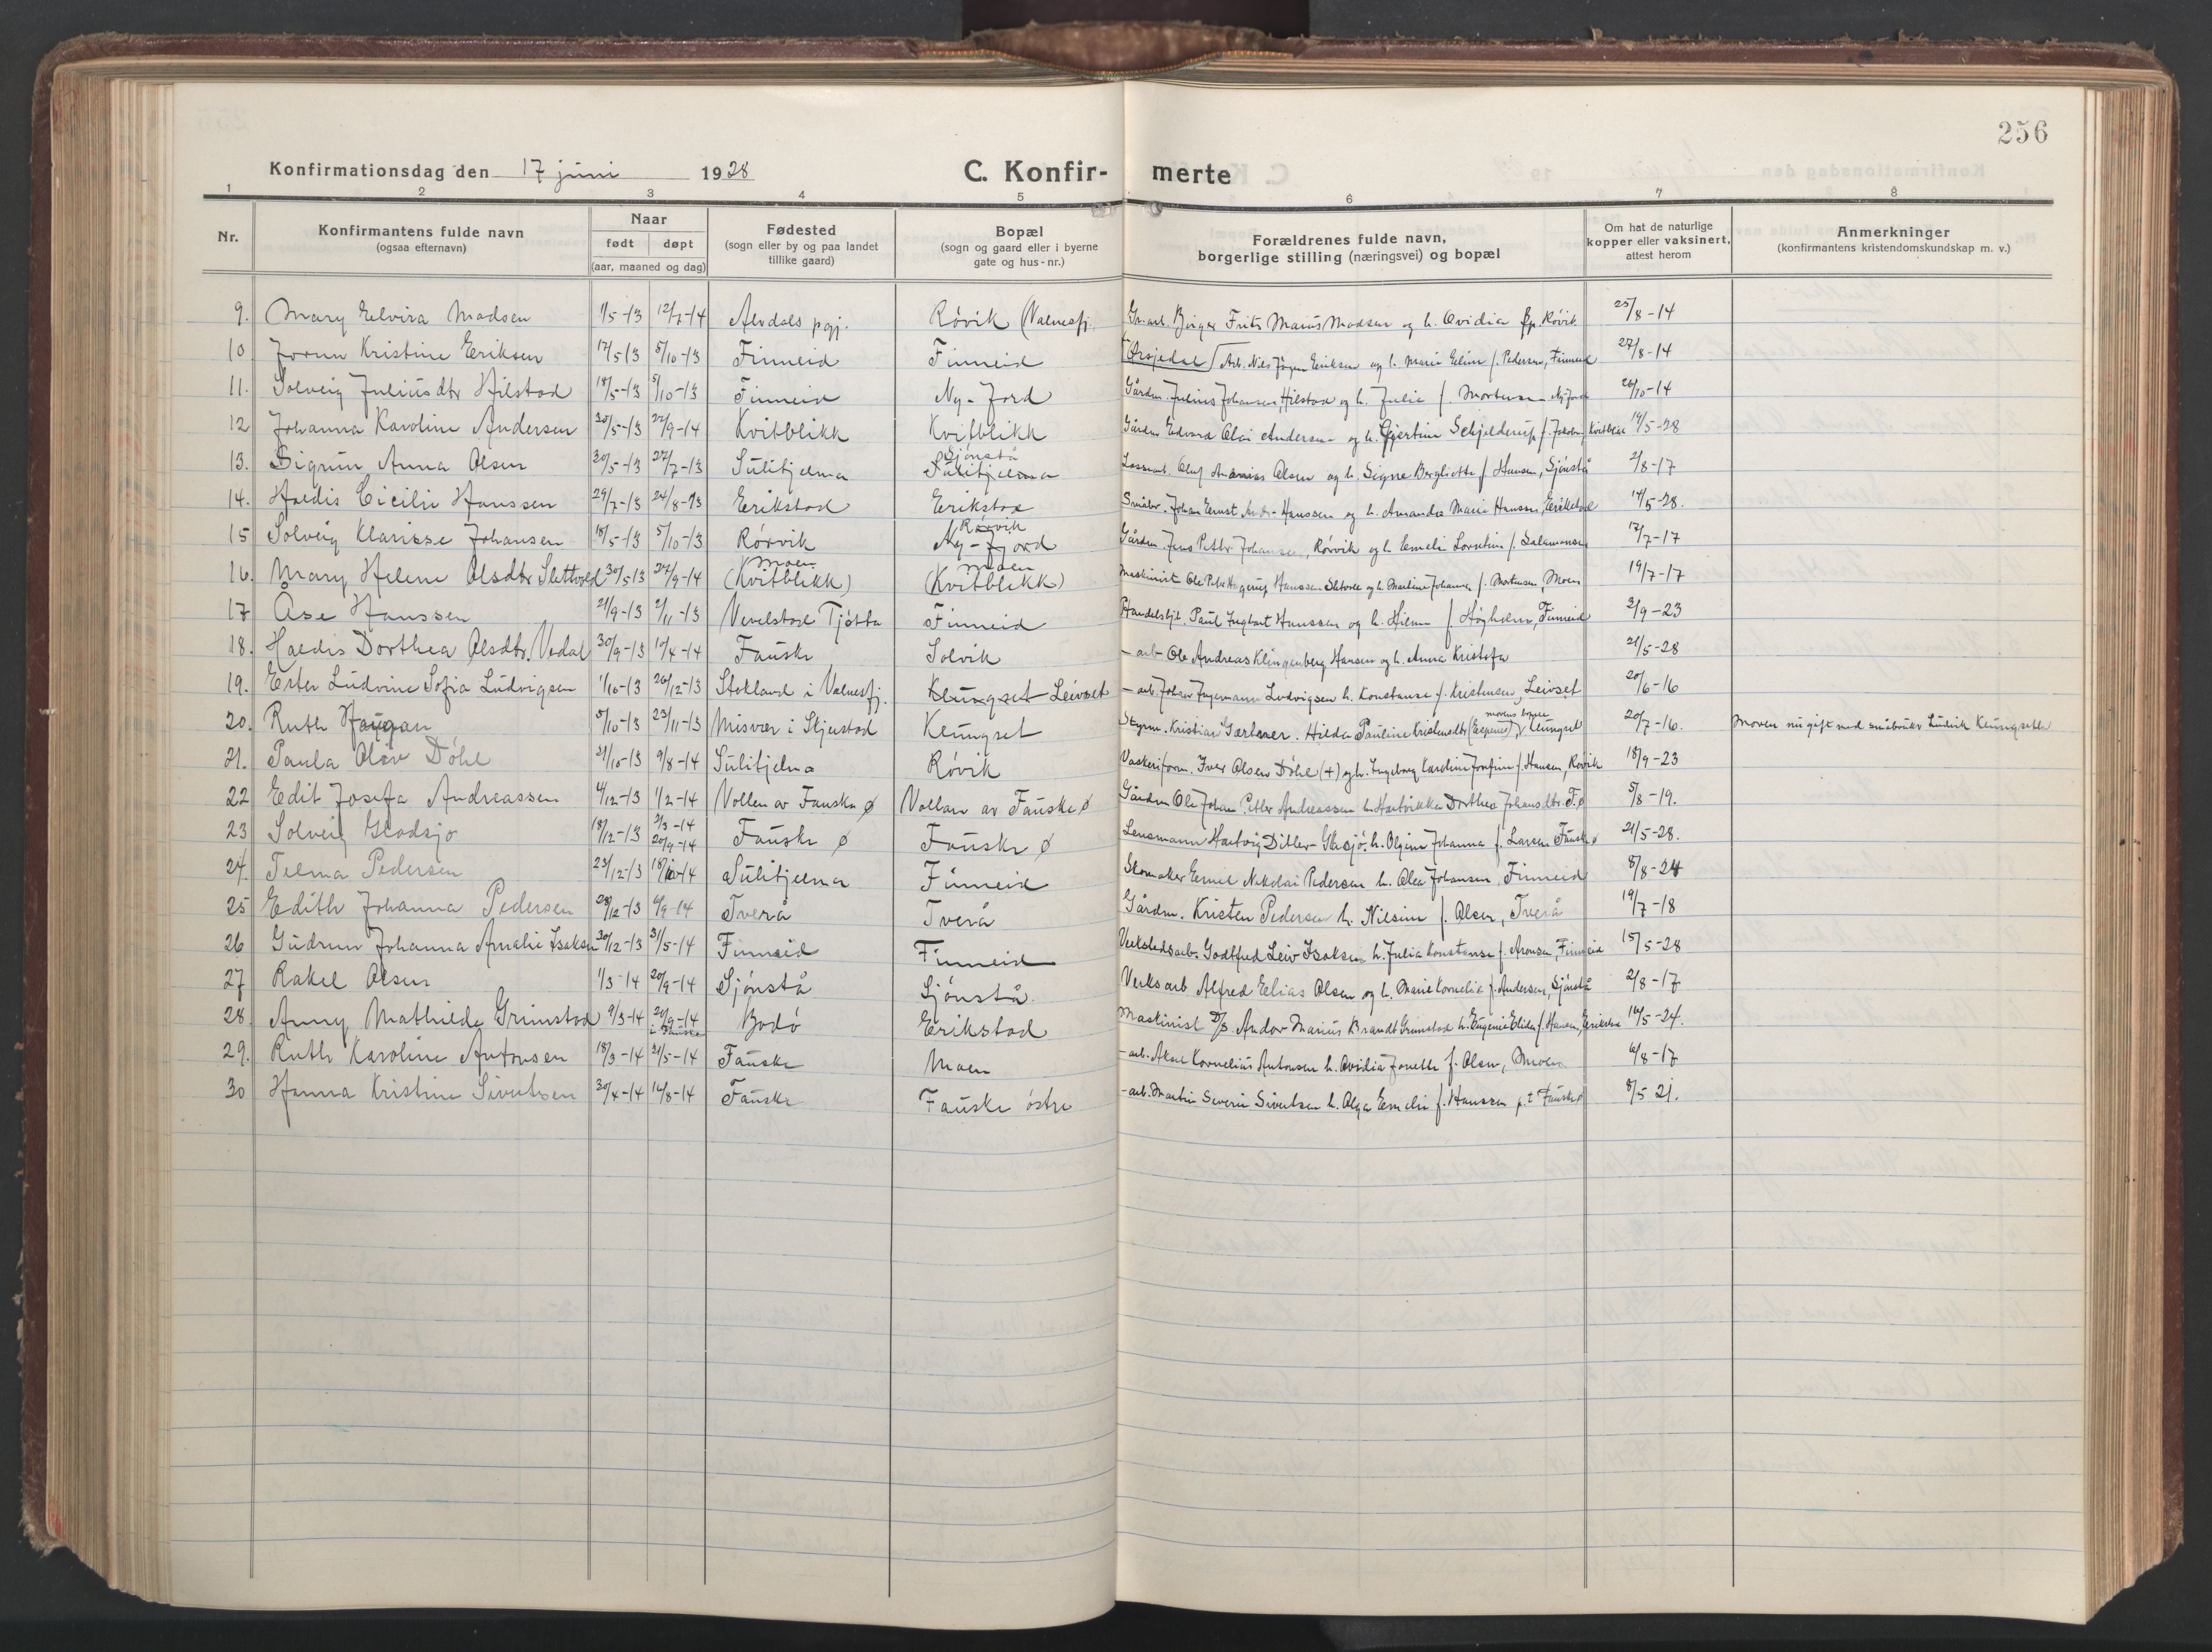 256
Konfirmationsdag den 17 juni 1928 C. Konfir- merte
1 2 3 4 5 6 7 8
Nr. Konfirmantens fulde navn (ogsaa efternavn) Naar født døpt (aar, maaned og dag) Fødested (sogn eller by og paa landet tillike gaard) Bopæl (sogn og gaard eller i byerne gate og hus-nr.) Forældrenes fulde navn, borgerlige stilling (næringsvei) og bopæl Om hat de naturlige kopper eller vaksinert, attest herom Anmerkninger (konfirmantens kristendomskundskap m. v.)
9. Mary Elvira Madsen 1/5-13 12/7-14 Alvdals pgj. Røvik (Valnesfj. Gr.arb. Birger Frits Marius Madsen og h. Ovidia Røvik 25/8-14
10 Jorun Kristine Eriksen 17/5 13 5/10-13 Finneid Finneid Arb. Nils Jörgen Eriksen og h. Marie Elise f. Pedersen, Finneid 27/8-14
11. Solveig Juliusdtr Hilstad 18/5-13 5/10-13 Finneid Ny-Jord Gårdm. Julius Johansen Hilstad og h. Julie f. Mortensen Ny-Jord 26/10-14
12 Johanna Karoline Andersen 30/5-13 22/9-14 Kvitblikk Kvitblikk Gårdm Edvard Olai Andersen og h. Gjertine Schjelderup f. Jakobs., Kvitblikk 19/5-28
13. Sigrun Anna Olsen 30/5-13 27/7-13 Sulitjelma Sjönstå Sulitjelma Lossearb. Oluf Ananias Olsen og h. Signe Bergliotte f. Hansen, Sjönstå 2/8-17
14. Haldis Cicilie Hanssen 29/7-13 24/8-13 Erikstad Erikstad Småbr. Johan Ernst Hanssen og h. Amanda Marie Hanssen, Erikstad 14/5-28.
15 Solveig Klarisse Johansen 18/5-13 5/10-13 Rørvik Rørvik Ny-Jord Gårdm. Jens Petter Johansen, Rørvik og h. Emelie Lovetine f. Salamonsen 17/7-17
16. Mary Helene Olsdtr Slettvold 30/5 13 27/9-14 Moen (Kvitblikk) Moen (Kvitblikk) Maskinist Ole Peter Hagerup Hanssen Sletvold og h. Martine Johanna f. Mortensen, Moen 19/7-17
17 Åse Hanssen 21/9-13 2/11-13 Vevelstad Tjötta Finneid Handelsbtj. Paul Ingbart Hanssen og h. Hilma f. Högholm, Finneid 3/9-23
18. Haldis Dorthea Olsdtr. Vedal 30/9-13 10/4-14 Fauske Solvik - arb Ole Andreas Klingenberg Hansen og h. Anna Kristofa 21/5-28
19. Ester Ludvine Sofia Ludvigsen 1/10-13 26/12-13 Stokland i Valnesfj. Klungset Leivset - arb. Johan Ingemann Ludvigsen h. Konstanse f. Kristensen, Leivset 20/6-16
20. Ruth Haugan 5/10-13 23/11-13 Misvær i Skjerstad Klungset Styrm. Kristian Gærtner. Hilda Pauline Kristensdtr morens bopæl Klungset 20/7-16. Moren nu gift med småbruker Ludvik Klungseth
21. Paula Olav Döhl 21/10-13 9/8-14 Sulitjelma Røvik Vaskeriform. Iver Olsen Döhl (+) og h. Ingeborg Karoline Josefine f. Hansen, Røvik 18/9-23
22 Edit Josefa Andreassen 4/12-13 1/2-14 Vollen av Fauske ø Vollen av Fauske ø Gårdm Ole Johan Petter Andreassen h. Hartvikka Dorthea Johansdtr. F.ø 5/8-19.
23 Solveig Gladsjö 18/12-13 3/3-14 20/9-14 Fauske ø Fauske ø Lensmann Hartvig Ditlev Glasjö, h. Olgine Johanna f. Larsen Fauske ø 21/5-28.
24. Telma Pedersen 23/12-13 18/10-14 Sulitjelma Finneid Skomaker Ernul Nikolai Pedersen h. Olea Johansen, Finneid 8/8-24
25 Edith Johanna Pedersen 28/12-13 6/9-14 Tverå Tverå Gårdm. Kristen Pedersen h. Nilsine f. Olsen, Tverå 19/7-18
26 Gudrun Johanna Amalie Isaksen 30/12-13 31/5-14 Finneid Finneid Verkstedsarb. Godtfred Leiv Isaksen h. Julia Konstanse f. Aronsen, Finneid 15/5-28
27 Rakel Olsen 1/3-14 20/9-14 Sjönstå Sjönstå. Verksarb Alfred Elias Olsen og h. Marie Kornelie f. Andersen, Sjönstå 2/8-17
28. Anny Mathilde Grimstad 9/3-14 20/9-14 i Fauske Bodö Erikstad Maskinist D/S Andor Marius Brandt Grimstad h. Eugenie Elida f. Hansen, Erikstad 16/5-24.
29. Ruth Karoline Antonsen 18/3-14 21/5-14 Fauske Moen - arb. Aksel Kornelius Antonsen h. Ovidia Jonette f. Olsen, Moen 6/8-17
30 Hanna Kristine Sivertsen 30/4-14 16/8-14 Fauske Fauske östre - arb. Martin Severin Sivertsen h. Olga Emelie f. Hanssen p.t. Fauske ø 8/5 21.